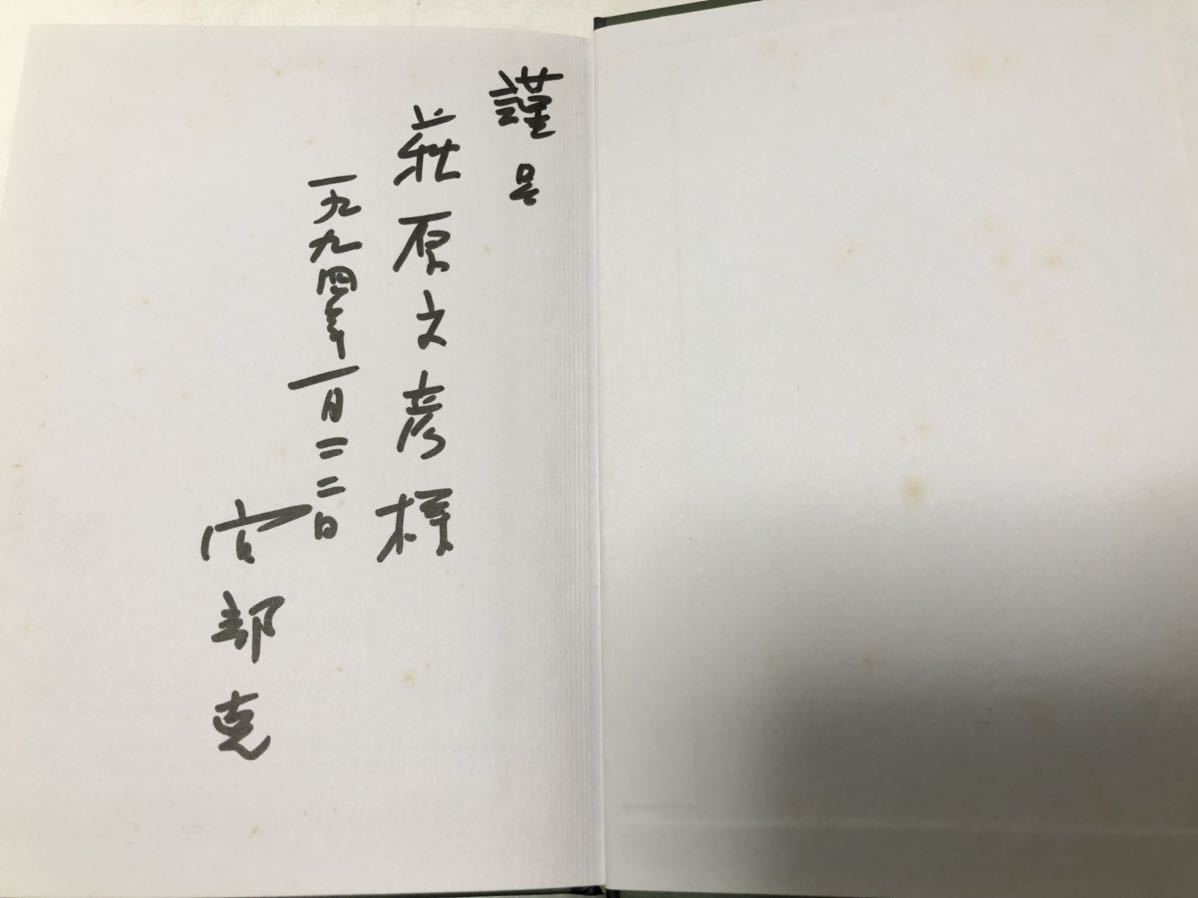 謹呈
荘原文彦様
一九九四年一月二二日
宮部克